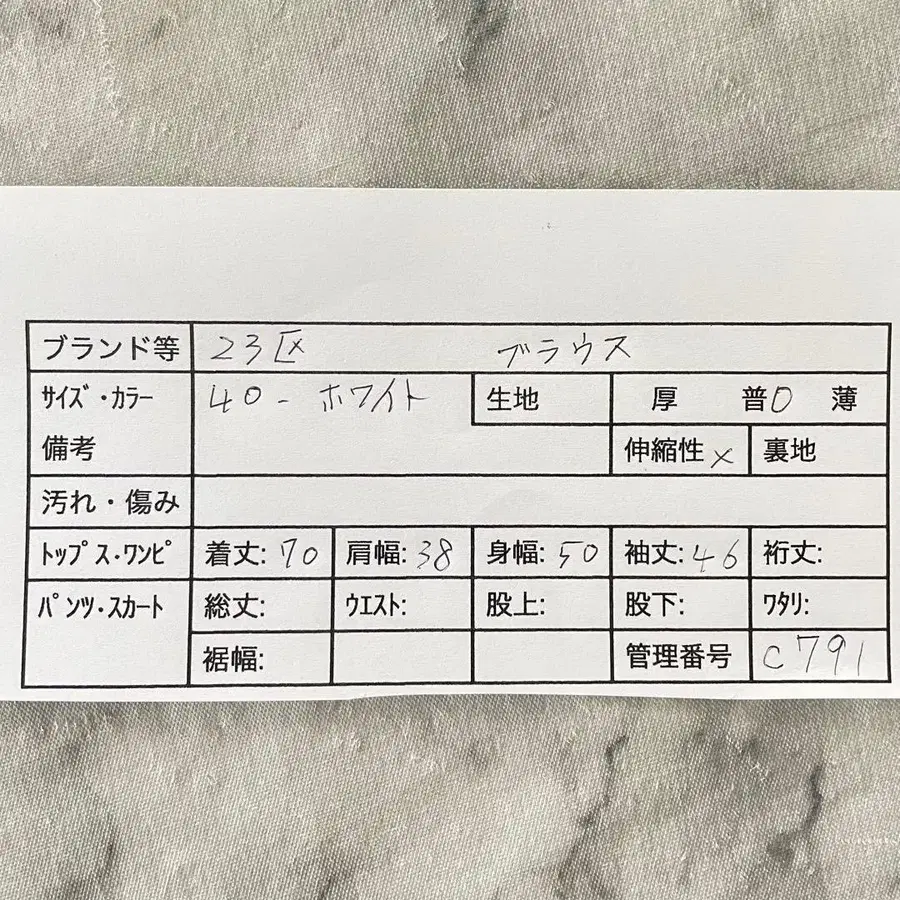 ブランド等 23区 ブラウス
サイズ・カラー 40-ホワイト 生地 厚 普O 薄
備考 伸縮性× 裏地
汚れ・傷み
トップス・ワンピ 着丈:70 肩幅:38 身幅:50 袖丈:46 裄丈:
パンツ・スカート 総丈: ウエスト: 股上: 股下: ワタリ:
裾幅: 管理番号 C791